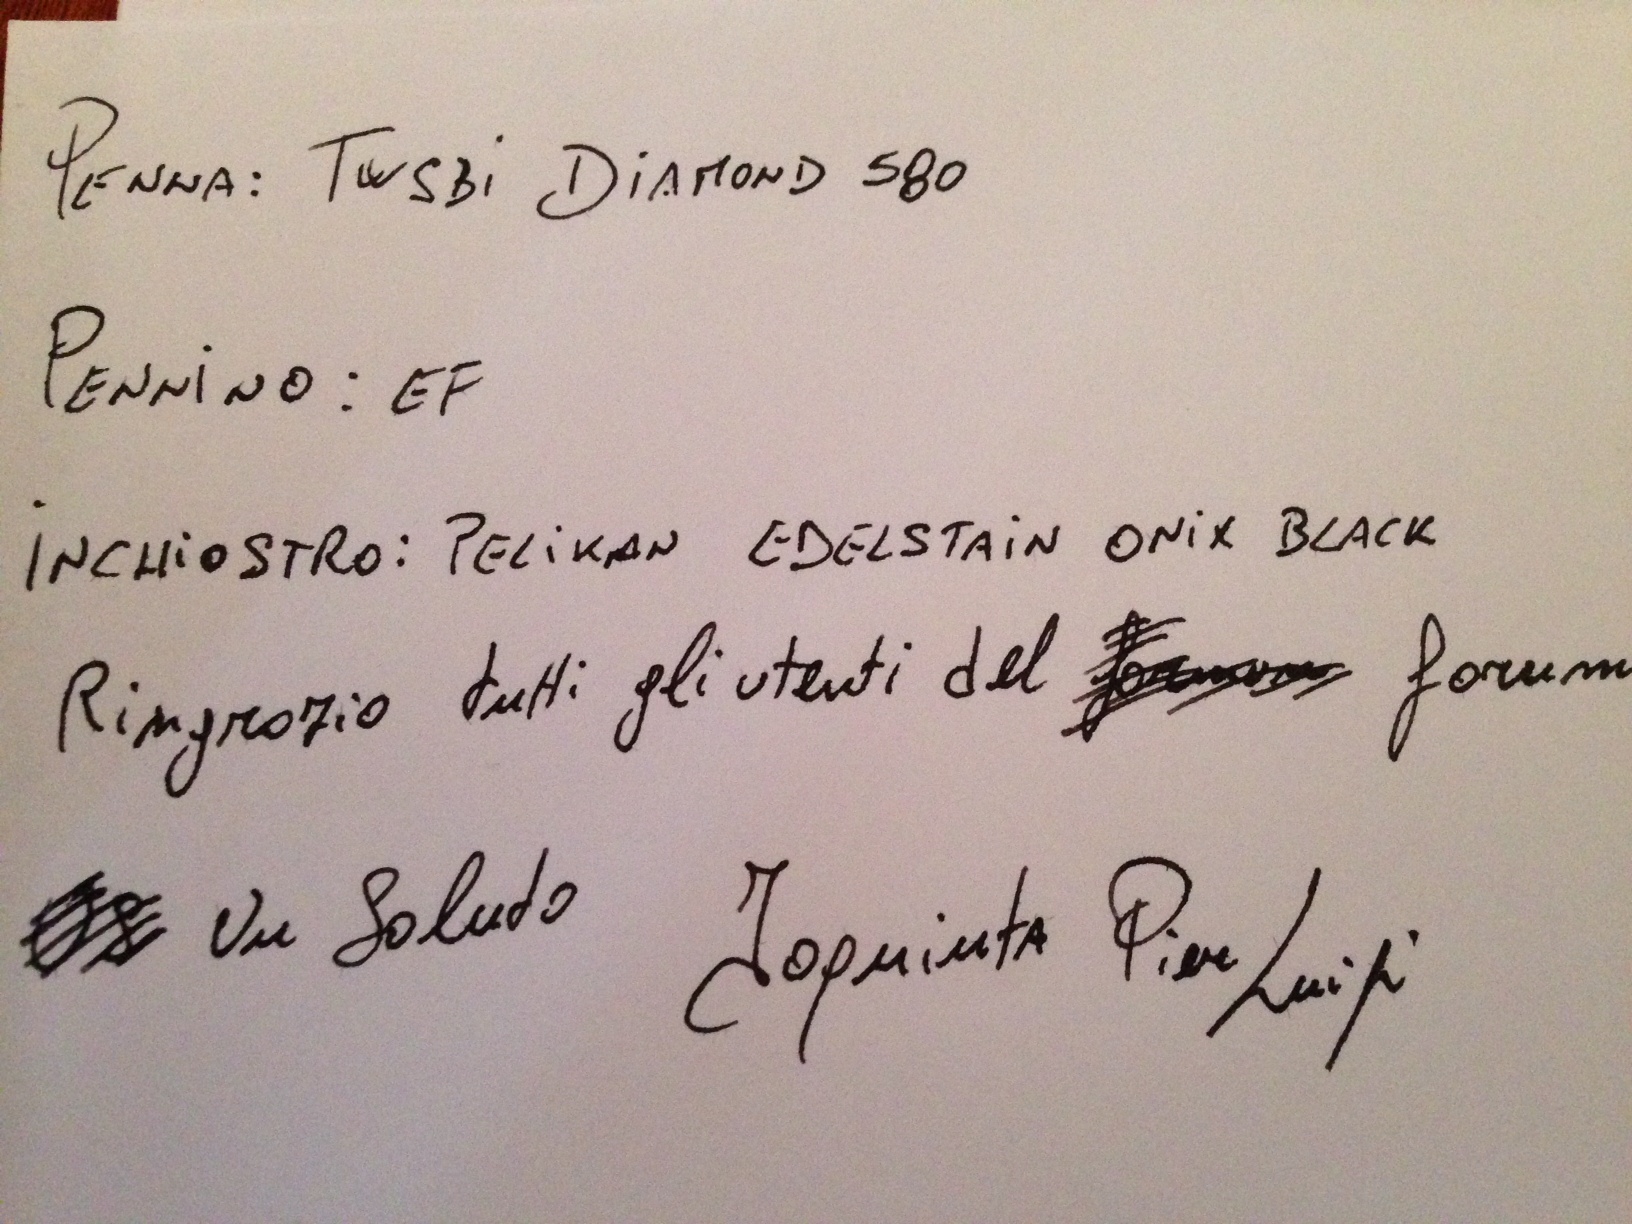 PENNA: TWSBi DIAMOND 580
PENNINO: EF
INCHIOSTRO: PELIKAN EDELSTAIN ONIX BLACK
Ringrazio tutti gli utenti del forum
Un Saluto Pier Luigi